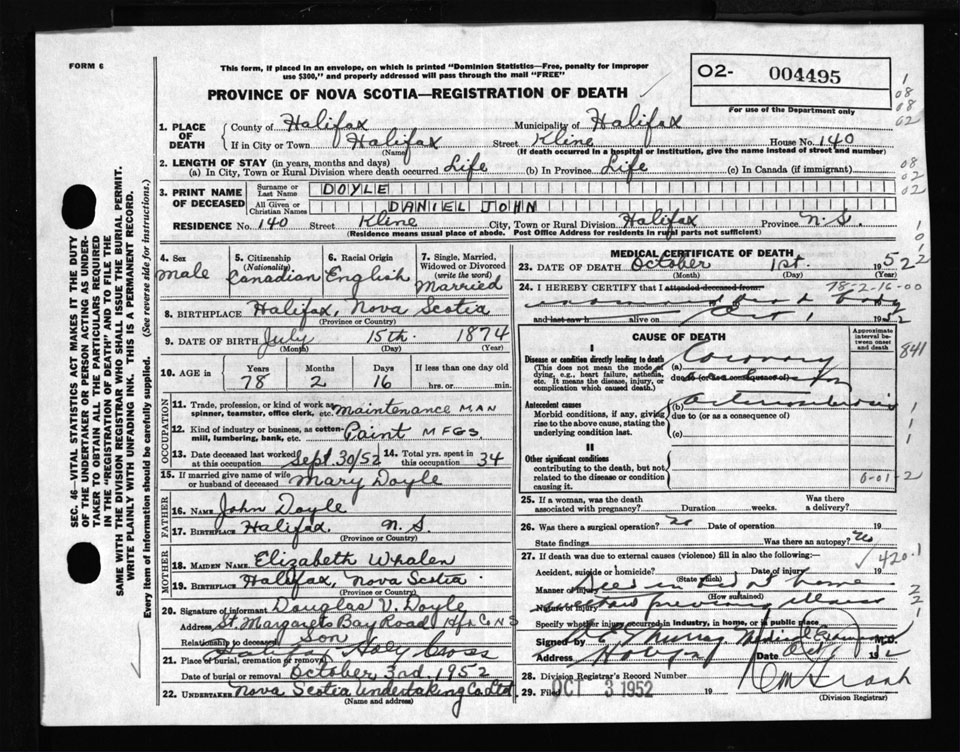 FORM 6
This form, if placed in an envelope, on which is printed "Dominion Statistics—Free, penalty for improper
use $300," and properly addressed will pass through the mail "FREE"
PROVINCE OF NOVA SCOTIA—REGISTRATION OF DEATH
02- 004495
For use of the Department only
1. PLACE OF DEATH
County of Halifax Municipality of Halifax
If in City or Town Halifax Street Kline House No. 140
(Name) (If death occurred in a hospital or institution, give the name instead of street and number)
2. LENGTH OF STAY (in years, months and days)
(a) In City, Town or Rural Division where death occurred Life (b) In Province Life (c) In Canada (if immigrant)
3. PRINT NAME OF DECEASED
Surname or Last Name DOYLE
All Given or Christian Names DANIEL JOHN
RESIDENCE No. 140 Street Kline City, Town or Rural Division Halifax Province N.S.
(Residence means usual place of abode. Post Office Address for residents in rural parts not sufficient)
SEC. 46—VITAL STATISTICS ACT MAKES IT THE DUTY
OF THE UNDERTAKER OR PERSON ACTING AS UNDER-
TAKER TO OBTAIN ALL THE PARTICULARS REQUIRED
IN THE "REGISTRATION OF DEATH" AND TO FILE THE
SAME WITH THE DIVISION REGISTRAR WHO SHALL ISSUE THE BURIAL PERMIT.
WRITE PLAINLY WITH UNFADING INK. THIS IS A PERMANENT RECORD.
Every item of information should be carefully supplied. (See reverse side for instructions.)
4. Sex Male
5. Citizenship (Nationality) Canadian
6. Racial Origin English
7. Single, Married, Widowed or Divorced (write the word) Married
8. BIRTHPLACE Halifax, Nova Scotia
(Province or Country)
9. DATE OF BIRTH July 15th. 1874
(Month) (Day) (Year)
10. AGE in Years 78 Months 2 Days 16 If less than one day old hrs. or min.
OCCUPATION
11. Trade, profession or kind of work as spinner, teamster, office clerk, etc. Maintenance MAN
12. Kind of industry or business, as cotton-mill, lumbering, bank, etc. Paint MFGS.
13. Date deceased last worked at this occupation Sept. 30/52 14. Total yrs. spent in this occupation 34
15. If married give name of wife or husband of deceased Mary Doyle
FATHER
16. NAME John Doyle
17. BIRTHPLACE Halifax N.S.
(Province or Country)
MOTHER
18. MAIDEN NAME Elizabeth Whalen
19. BIRTHPLACE Halifax, Nova Scotia.
(Province or Country)
20. Signature of informant Douglas V. Doyle
Address St. Margarets Bay Road Hfx Co NS
Relationship to deceased Son
21. Place of burial, cremation or removal Halifax Holy Cross
Date of burial or removal October 3rd. 1952
22. UNDERTAKER Nova Scotia Undertaking Co. Ltd
(Name and address)
MEDICAL CERTIFICATE OF DEATH
23. DATE OF DEATH October 1st. 1952
(Month) (Day) (Year)
24. I HEREBY CERTIFY that I attended deceased from: 7852-16-00
dead body
and last saw h alive on Oct 1 1952
CAUSE OF DEATH
Approximate interval between onset and death
I
Disease or condition directly leading to death
(This does not mean the mode of dying, e.g., heart failure, asthenia, etc. It means the disease, injury, or complication which caused death.)
(a) Coronary
due to (or as a consequence of)
841
Antecedent causes
Morbid conditions, if any, giving rise to the above cause, stating the underlying condition last.
(b) arteriosclerosis
due to (or as a consequence of)
(c)
II
Other significant conditions
contributing to the death, but not related to the disease or condition causing it
0-01-2
25. If a woman, was the death associated with pregnancy? Duration weeks. Was there a delivery?
26. Was there a surgical operation? no Date of operation 19
State findings Was there an autopsy? no
27. If death was due to external causes (violence) fill in also the following:— 420.1
Accident, suicide or homicide? Date of injury 19
(State which)
Manner of injury Died in bed at home
(How sustained)
Nature of injury previous illness
Specify whether injury occurred in industry, in home, or in public place
Signed by Murray Medical Examiner M.D.
Address Halifax Date Oct 1 1952
28. Division Registrar's Record Number
29. Filed OCT 3 1952 19
(Division Registrar)